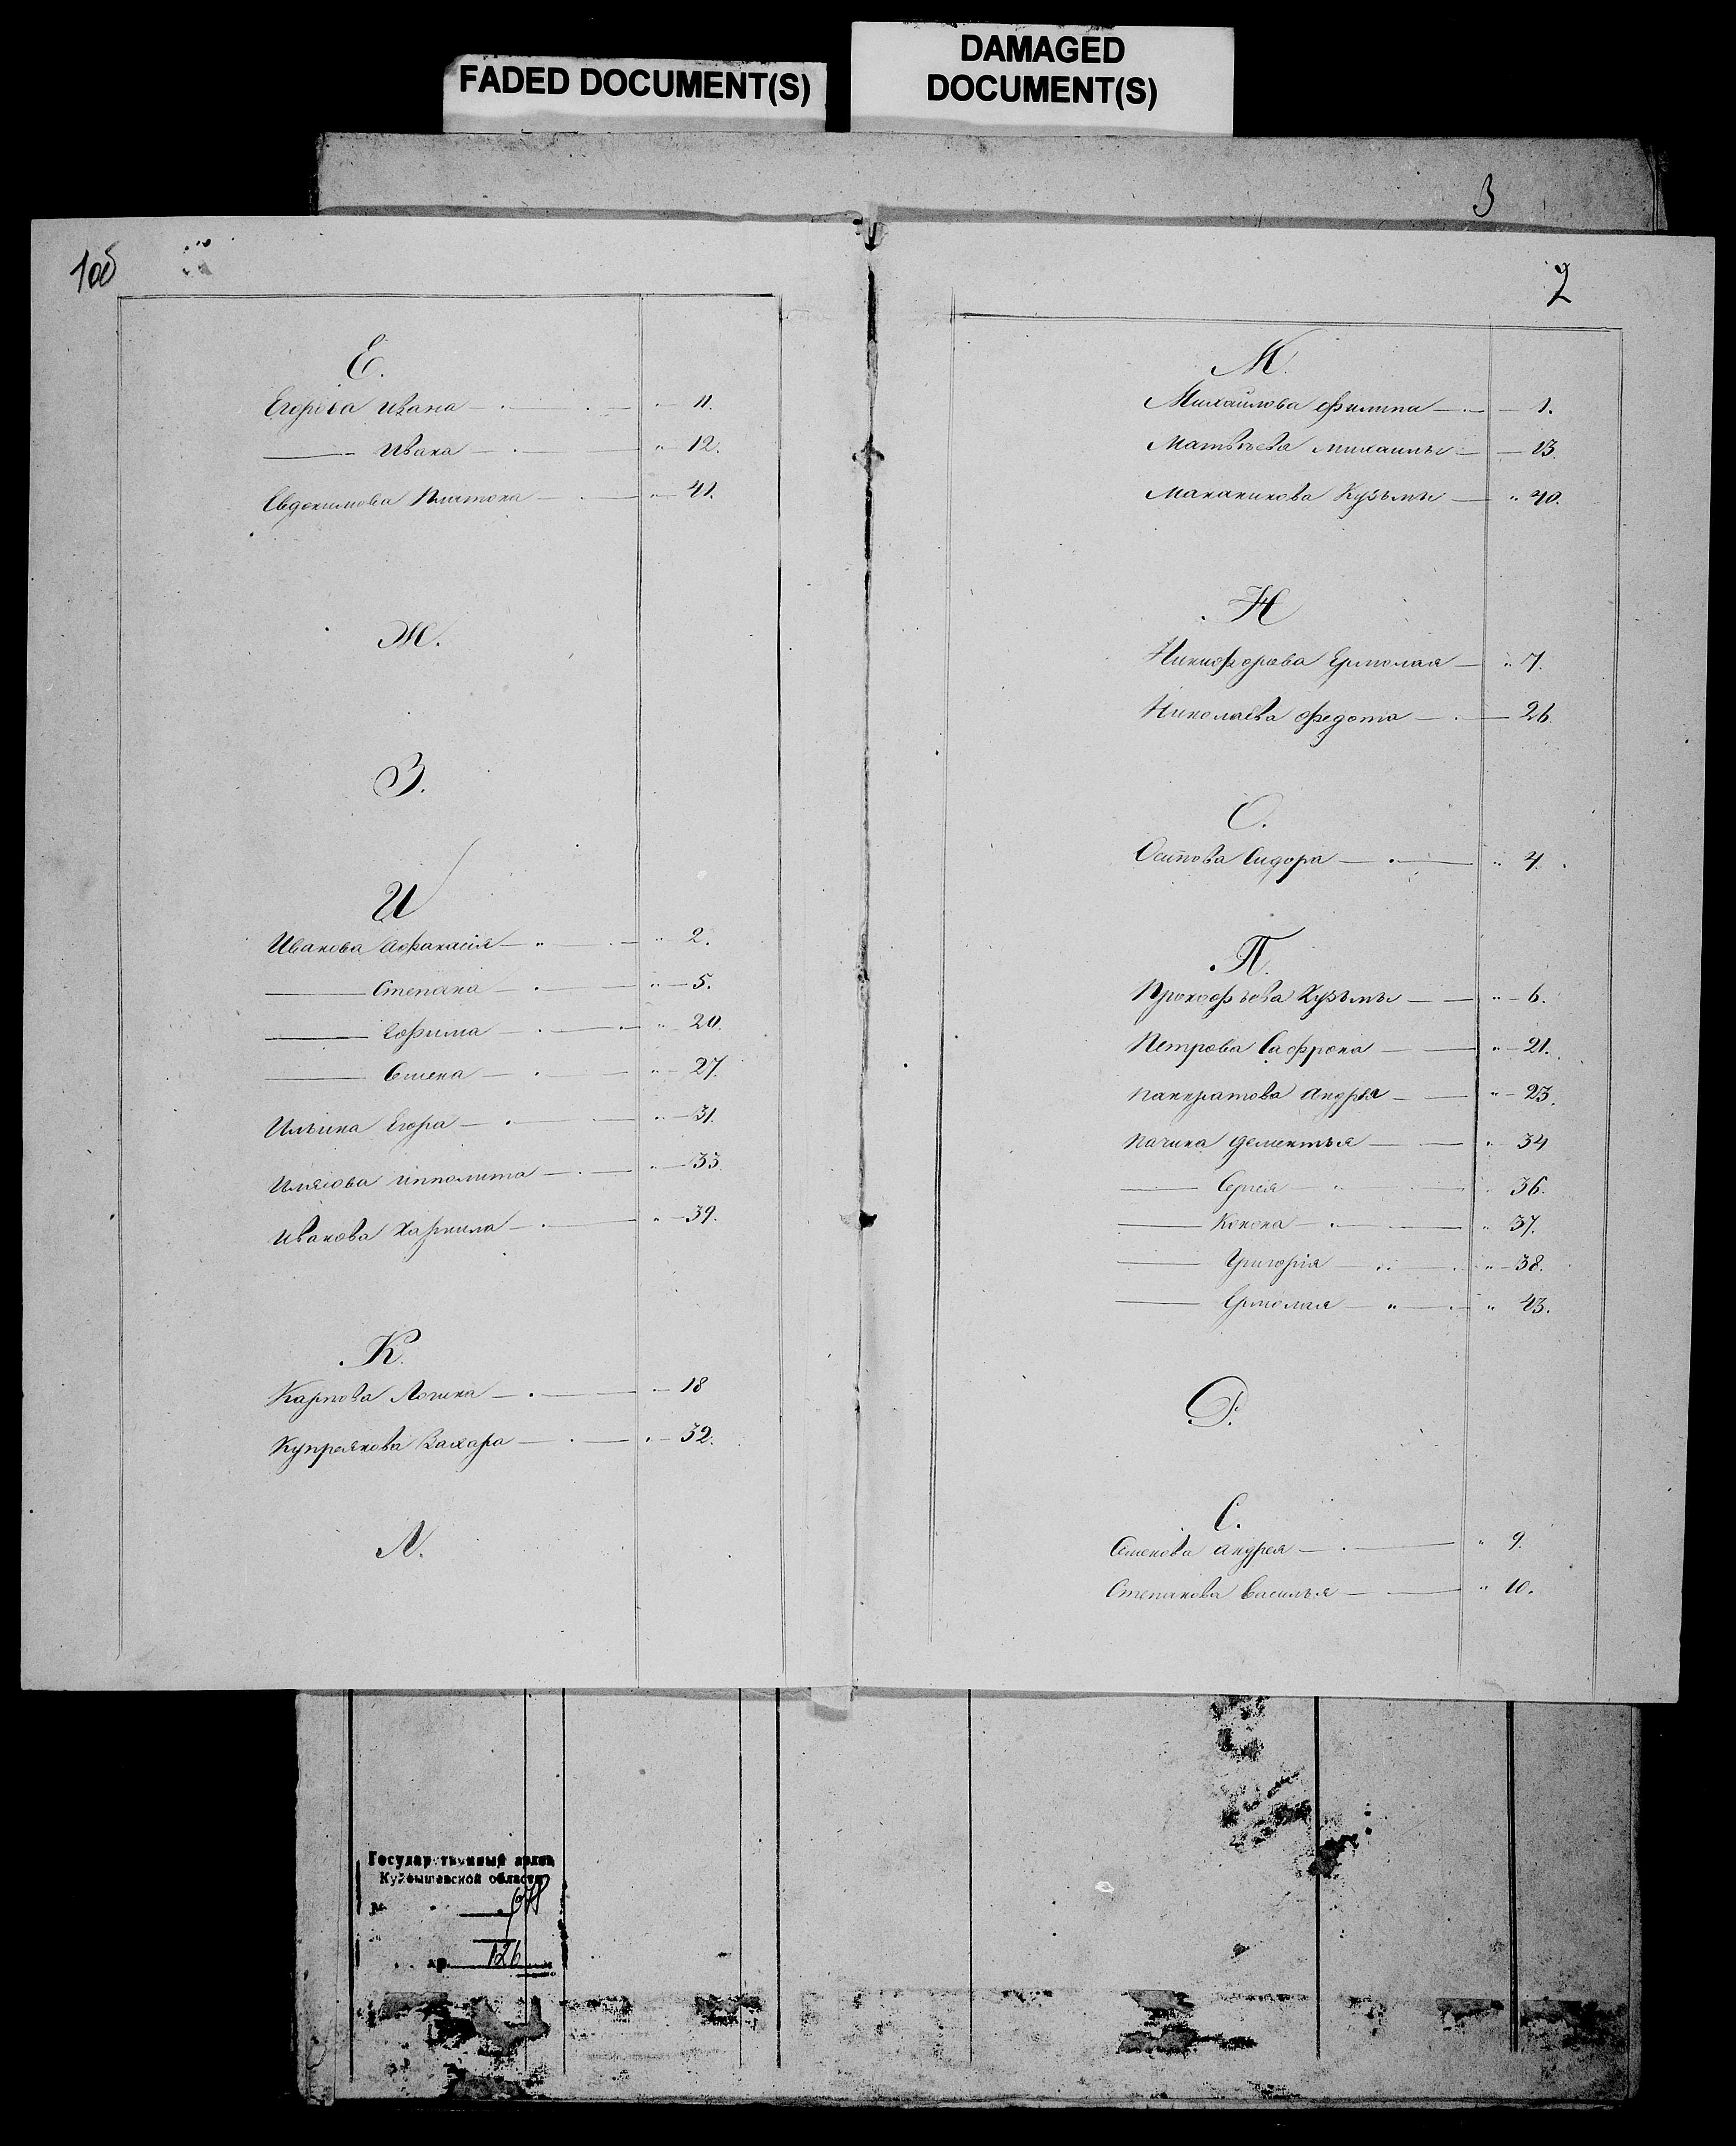 FADED DOCUMENT(S)
DAMAGED
DOCUMENT(S)
3
1об
Е.
Егорова Ивана — 11.
—— Ивана — 12.
Евдокимова Платона — 41.
Ж.
З.
И
Иванова Афанасія — 2.
—— Степана — 5.
—— Ефима — 20.
—— Семена — 27.
Ильина Егора — 31.
Ипполита — 33.
Иванова — 39.
К.
Карпова Логина — 18
Купреянова Захара — 32.
Л.
2
М.
Михайлова Филипа — 1.
Матвѣева Михаилы — 13.
Маканикова Кузьмы — 40.
Н
Никифорова Ермолая — 7.
Николаева Федота — 26.
О.
Осипова Сидора — 4.
П.
Прокофьева Кузьмы — 6.
Петрова Сафрона — 21.
Панкратова Андрея — 23.
Пачина Дементья — 34
—— Сергея — 36.
—— Конона — 37.
—— Григорія — 38.
—— Ермолая — 43.
Р.
С.
Семенова Андрея — 9.
Степанова Василья — 10.
Государственный архив
Куйбышевской области
126